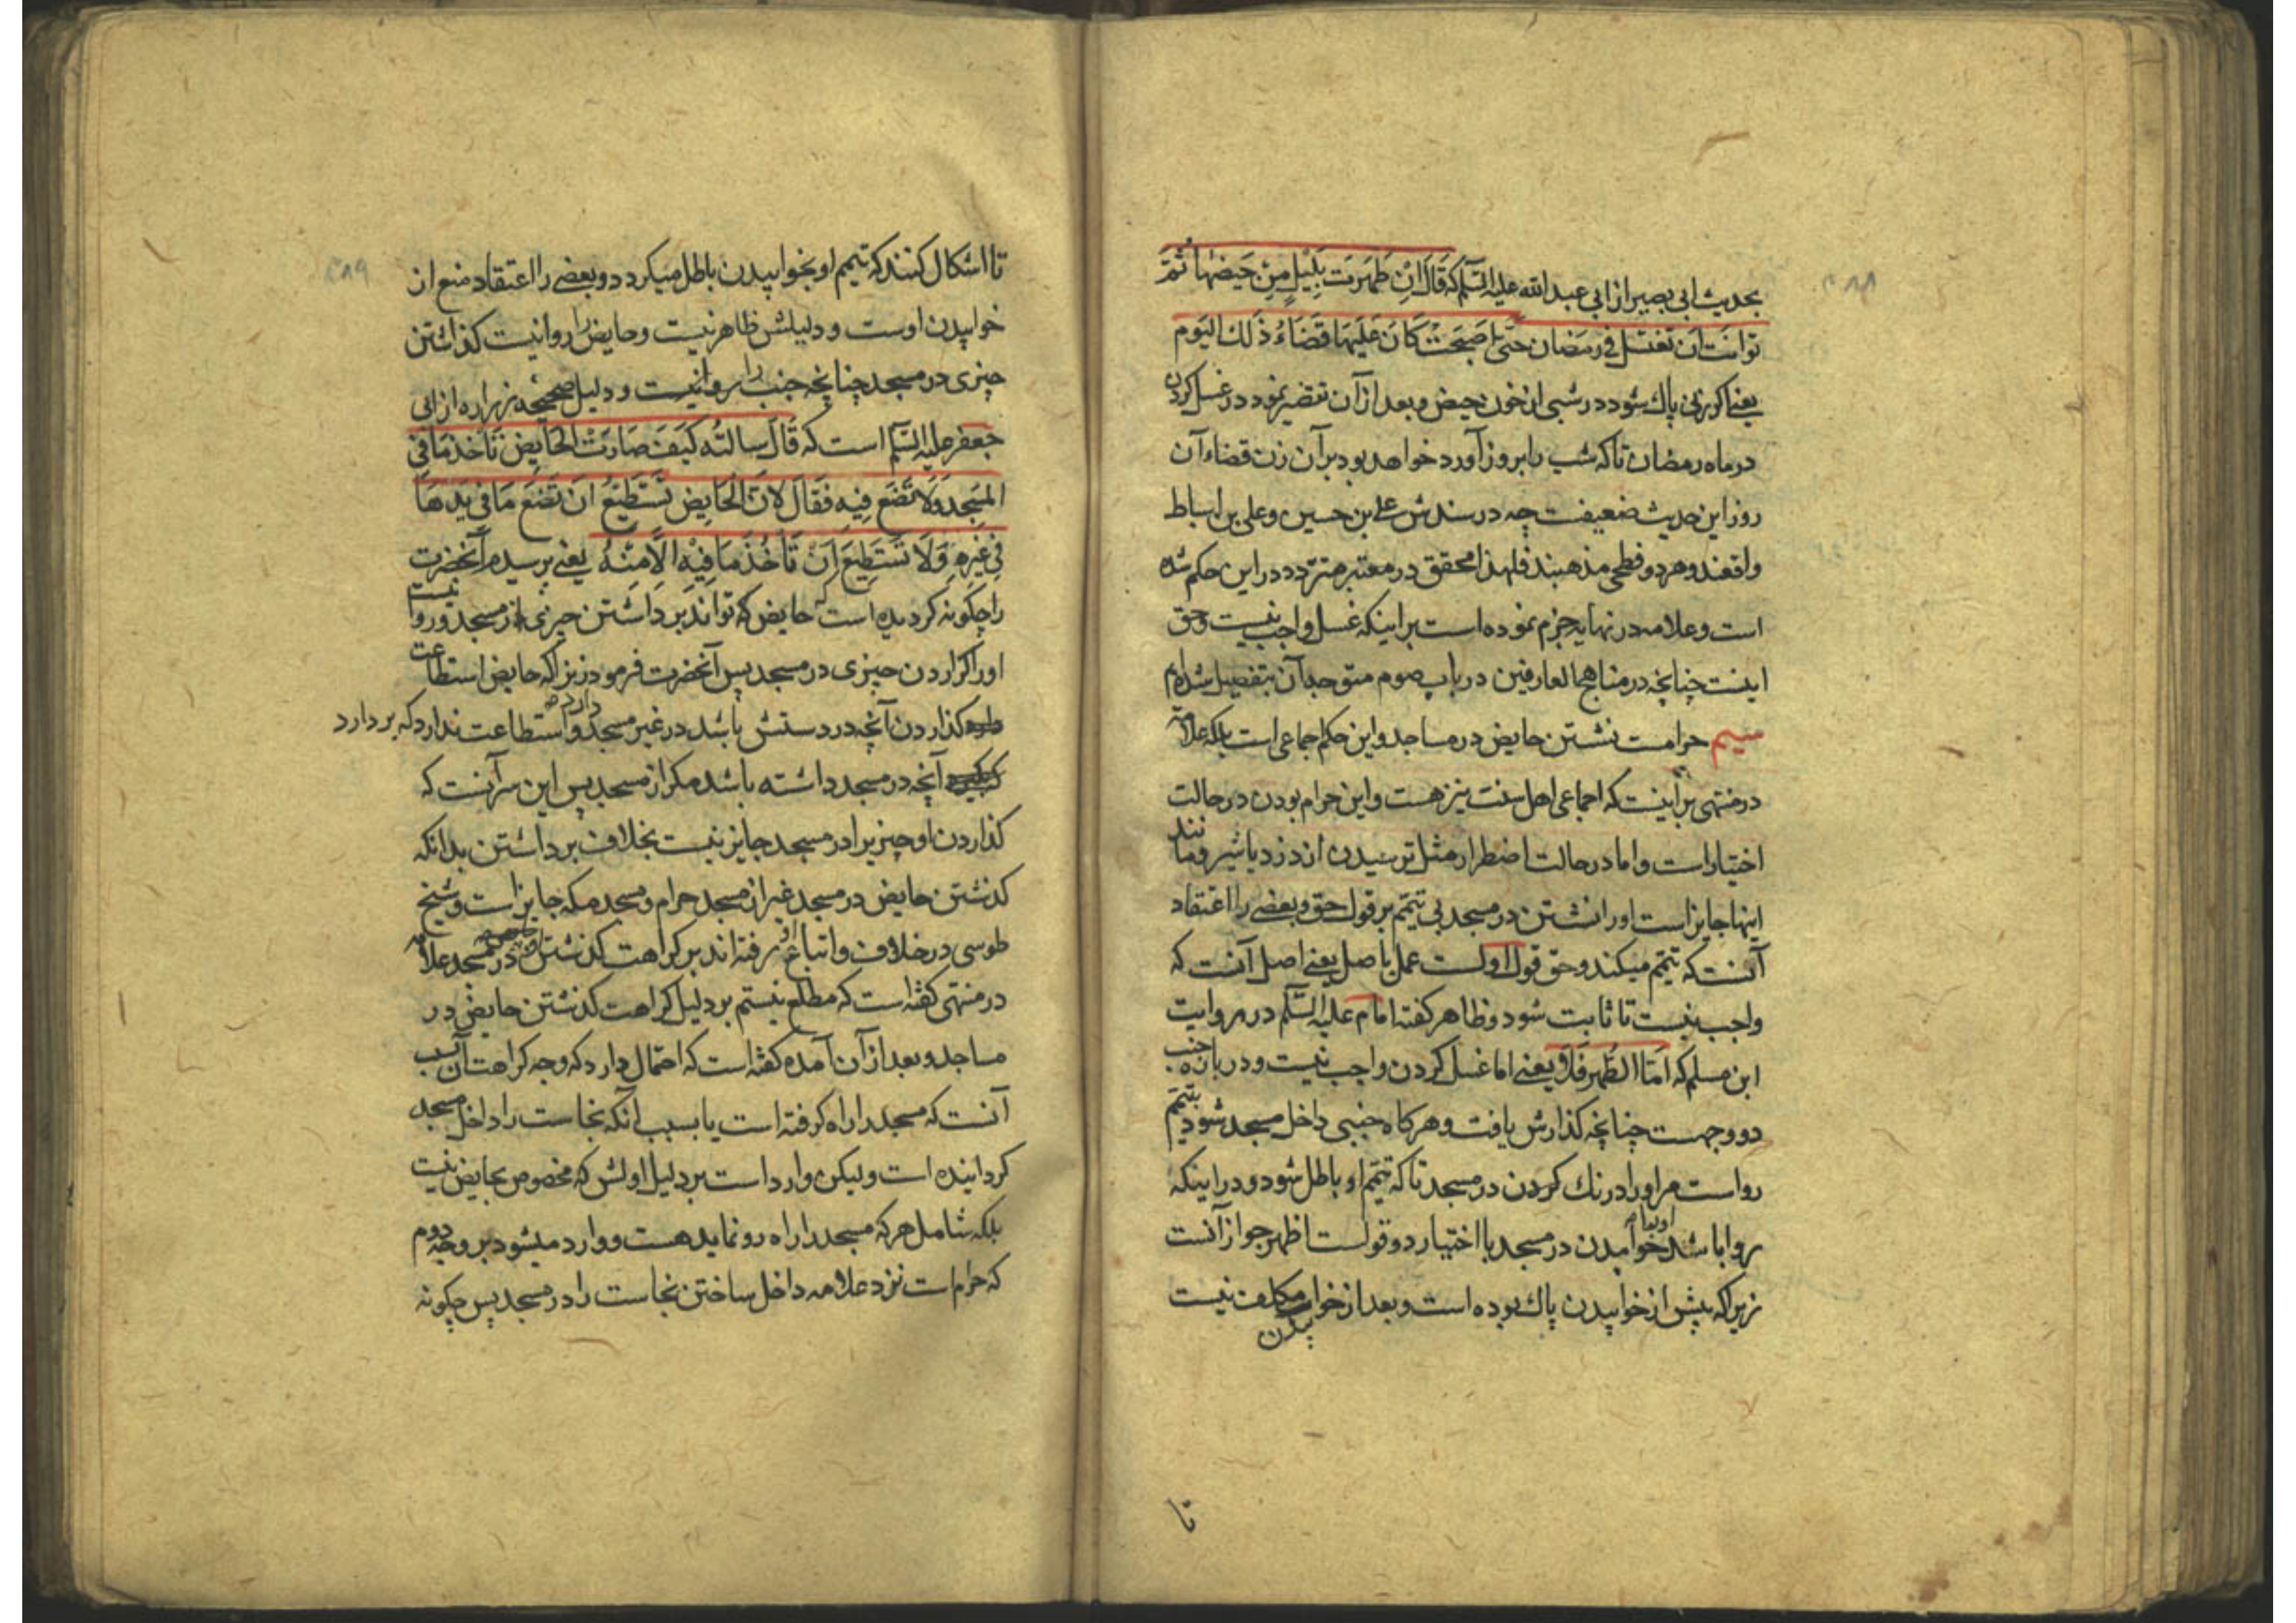 بحدیث ابی بصیر از ابی عبدالله علیه السلام که قَالَ اِنْ طَهُرَت بِلَیْلٍ مِنْ حَیضِهَا ثُمَّ
توانَت اَن تغتسل فی رمَضان حتی اَصبَحَتْ کَانَ عَلَیهَا قَضَاءُ ذَلكَ الیَوم
یعنی اکر زنی پاك شود در شبی از خون حیض و بعد از آن تقصیر نمود در غسل کردن
در ماه رمضان تا که شب را بروز آورد خواهد بود بر آن زن قضاء آن
روز این حدیث ضعیفست چه در سندش علی بن حسین و علی بن اسباط
واقعند و هر دو فطحی مذهبند فلهذا محقق در معتبر متردد در این حکم شده
است و علامه در نهایه جزم نموده است بر اینکه غسل واجب نیست و حق
اینست چنانچه در مناهج العارفین در باب صوم متوجه آن بتفصیل شده‌ایم
سیم حرامست نشستن حایض در مساجد و این حکم اجماعی است بلکه علامه
در منتهی بر اینست که اجماعی اهل سنت نیز هست و این حرام بودن در حالت
اختیار است و اما در حالت اضطرار مثل ترسیدن از دزد یا شیر و مانند
اینها جایز است او را نشستن در مسجد بی تیمّم بر قول حق و بعضی را اعتقاد
آنست که تیمّم میکند و حق قول اولست عمل باصل یعنی اصل آنست که
واجب نیست تا ثابت شود و ظاهر کفته امام علیه السَّلم در روایت
ابن مسلم که اَمّا الطُّهر فَلاَ یعنی اما غسل کردن واجب نیست و در باره جنب
دو وجهست چنانچه کذارش یافت و هرکاه جنبی داخل مسجد شود بتیمّم
رواست مر او را درنك کردن در مسجد تا که تیمّم او باطل شود و در اینکه
روا باشد او را خوابیدن در مسجد با اختیار دو قولست اظهر جواز آنست
زیرا که پیش از خوابیدن پاك بوده است و بعد از خوابیدن مکلف نیست
تا
تا اشکال کنند که تیمم او بخوابیدن باطل میکردد و بعضی را اعتقاد منع از
خوابیدن اوست و دلیلش ظاهر نیست و حایض را روا نیست کذاشتن
چیزی در مسجد چنانچه جنب را روا نیست و دلیل صحیحه زراره از ابی
جعفر علیه السلم است که قَالَ سالتُه کَیفَ صَارَتْ الحَایِض تَاخذ مَا فی
المسَجِد وَلَا تَضَع فِیهِ فَقَالَ لانّ الحَایِض تَسْتَطِیْعُ اَن تَضَعَ مَا فی یَدهَا
فی غیْرِهِ وَلَا تَستَطِیعَ اَنْ تَاْخُذَ مَا فِیْهِ الاّ مِنْهُ یعنی پرسیدم آنحضرت
را چکونه کردیده است که حایض تواند برداشتن چیزی از مسجد و روا نیست
او را کزاردن چیزی در مسجد پس آنحضرت فرمود زیرا که حایض استطاعت
دارد کذاردن آنچه در دستش باشد در غیر مسجد و استطاعت ندارد که بردارد
آنچه در مسجد داشته باشد مکر از مسجد پس این سر آنست که
کذاردن او چیزیرا در مسجد جایز نیست بخلاف برداشتن بدانکه
کذشتن حایض در مسجد غیر از مسجد حرام و مسجد مکه جایز است و شیخ
طوسی در خلاف و اتباع او رفته‌اند بر کراهت کذشتن حایض در مسجد علامه
در منتهی کفته است که مطلع نیستم بر دلیل کراهت کذشتن حایض در
مساجد و بعد از آن آمده کفته است که احتمال دارد که وجه کراهت آن بسبب
آنست که مسجد را راه کرفته است یا بسبب آنکه نجاست را داخل مسجد
کردانیده است و لیکن وارد است بر دلیل اولش که مخصوص بحایض نیست
بلکه شامل هر که مسجد را راه رو نماید هست و وارد میشود بر وجه دوم
که حرامست نزد علامه داخل ساختن نجاست را در مسجد پس چکونه